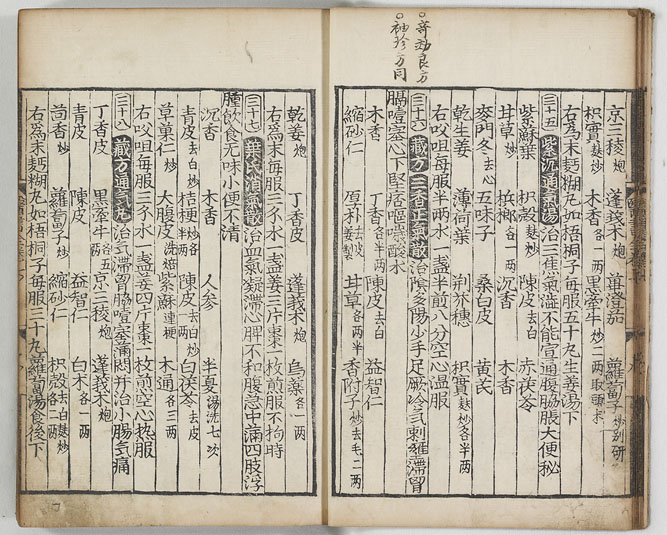 ○奇効良方
○袖珍方同
京三稜炮 蓬莪朮炮 蓽澄茄 蘿蔔子炒別研
枳實麩炒 木香各一兩 黑牽牛炒二兩取頭末
右為末麪糊丸如梧桐子每服五十丸生姜湯下
三十五 紫沉通氣湯 治三焦氣澁不能宣通腹脇脹大便秘
紫蘇葉 枳殼麩炒 陳皮去白 赤茯苓
甘草炒 檳榔各一兩 沉香 木香
麥門冬去心 五味子 桑白皮 黄芪
乾生姜 薄荷 荆芥穗 枳實麩炒各半兩
右㕮咀每服半兩水一盞半煎八分空心溫服
三十六 藏方三香正氣散 治陰多陽少手足厥冷氣刺壅滯胃
膈噎塞心下堅痞嘔噦酸水
木香 丁香各半兩 陳皮去白 益智仁
縮砂仁 厚朴去皮姜製 甘草各兩半 香附子炒去毛二兩
乾姜炮 丁香皮 蓬莪朮炮 烏藥各一兩
右為末每服三水一盞姜三片棗一枚煎服不拘時
三十七 華氏消氣散 治血氣凝滯心脾不和腹急中滿四肢浮
腫飲食无味小便不清
沉香 木香 人参 半夏湯洗七次
青皮去白炒 桔梗炒各半兩 陳皮去白炒 白茯苓去皮
草菓仁炒 大腹皮洗焙 紫蘇連梗 木通各三兩
右㕮咀每服三水一盞姜四片棗一枚煎空心熱服
三十八 藏方通氣丸 治氣滯胃脇噎塞滿悶并治小腸氣痛
丁香皮 黑牽牛各五兩 京三稜炮 蓬莪朮炮
青皮 陳皮 益智仁 白朮各一兩
茴香炒 蘿蔔子炒 縮砂仁 枳殼去白麩炒各二兩
右為末麪糊丸如梧桐子每服三十丸蘿蔔湯食後下